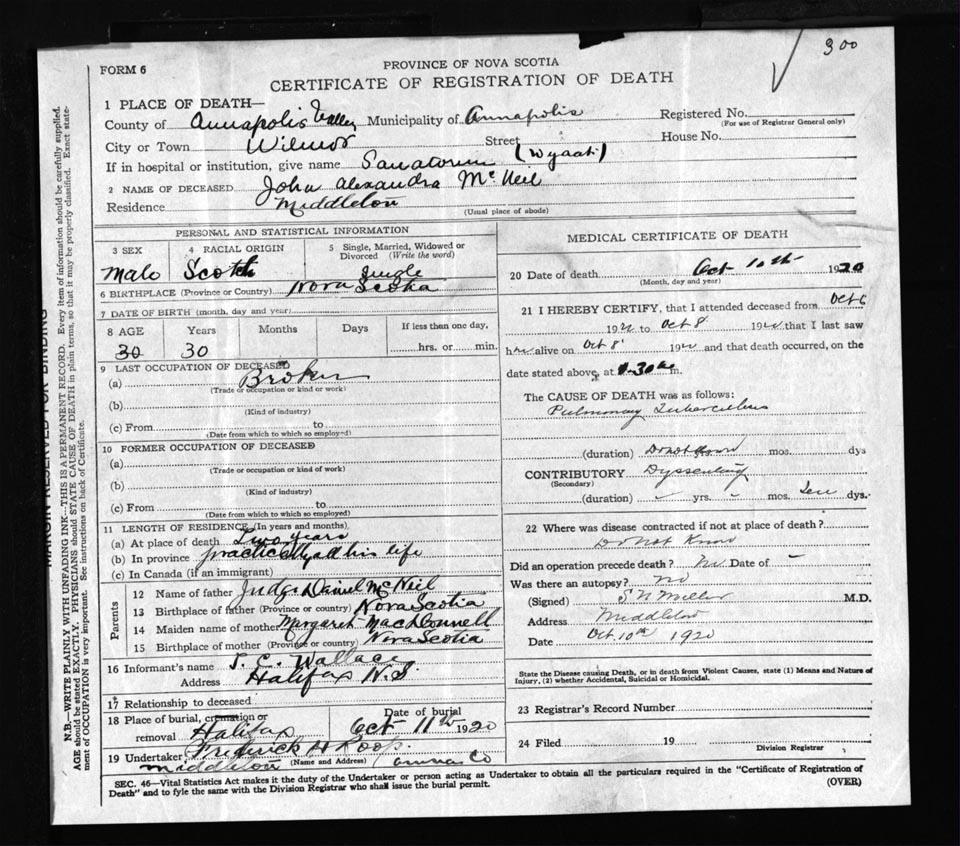 300
FORM 6
PROVINCE OF NOVA SCOTIA
CERTIFICATE OF REGISTRATION OF DEATH
1 PLACE OF DEATH—
County of Annapolis Valley Municipality of Annapolis Registered No.
(For use of Registrar General only)
City or Town Wilmot Street House No.
If in hospital or institution, give name Sanatorium (Wyaat)
2 NAME OF DECEASED John Alexandra McNeil
Residence Middleton
(Usual place of abode)
PERSONAL AND STATISTICAL INFORMATION
3 SEX 4 RACIAL ORIGIN 5 Single, Married, Widowed or Divorced (Write the word)
Male Scotch single
6 BIRTHPLACE (Province or Country) Nova Scotia
7 DATE OF BIRTH (month, day and year)
8 AGE Years Months Days If less than one day,
30 30 hrs. or min.
9 LAST OCCUPATION OF DECEASED
(a) Broker
(Trade or occupation or kind or work)
(b)
(Kind of industry)
(c) From to
(Date from which to which so employed)
10 FORMER OCCUPATION OF DECEASED
(a)
(Trade or occupation or kind of work)
(b)
(Kind of industry)
(c) From to
(Date from which to which so employed)
11 LENGTH OF RESIDENCE (In years and months)
(a) At place of death Two years
(b) In province practically all his life
(c) In Canada (if an immigrant)
Parents
12 Name of father Judge Daniel McNeil
13 Birthplace of father (Province or country) Nova Scotia
14 Maiden name of mother Margaret MacDonnell
15 Birthplace of mother (Province or country) Nova Scotia
16 Informant's name T. C. Wallace
Address Halifax N.S
17 Relationship to deceased
18 Place of burial, cremation or removal Halifax Date of burial Oct 11th 1920
19 Undertaker Frederick H Roop
(Name and Address)
Middleton Anna Co
MEDICAL CERTIFICATE OF DEATH
20 Date of death Oct 10th 1920
(Month, day and year)
21 I HEREBY CERTIFY, that I attended deceased from Oct 6
1920 to Oct 8 1920 that I last saw
him alive on Oct 8 1920 and that death occurred, on the
date stated above, at 1-30 a m.
The CAUSE OF DEATH was as follows:
Pulmonary Tuberculosis
(duration) Do not Know mos. dys
CONTRIBUTORY Dyssentery
(Secondary)
(duration) - yrs. - mos. ten dys.
22 Where was disease contracted if not at place of death?
Do not Know
Did an operation precede death? No Date of -
Was there an autopsy? no
(Signed) S N Miller M.D.
Address Middleton
Date Oct 10th 1920
State the Disease causing Death, or in death from Violent Causes, state (1) Means and Nature of
Injury, (2) whether Accidental, Suicidal or Homicidal.
23 Registrar's Record Number
24 Filed 19
Division Registrar
SEC. 46—Vital Statistics Act makes it the duty of the Undertaker or person acting as Undertaker to obtain all the particulars required in the "Certificate of Registration of
Death" and to fyle the same with the Division Registrar who shall issue the burial permit. (OVER)
MARGIN RESERVED FOR BINDING
N.B.—WRITE PLAINLY WITH UNFADING INK—THIS IS A PERMANENT RECORD. Every item of information should be carefully supplied.
AGE should be stated EXACTLY. PHYSICIANS should STATE CAUSE OF DEATH in plain terms, so that it may be properly classified. Exact state-
ment of OCCUPATION is very important. See instructions on back of Certificate.